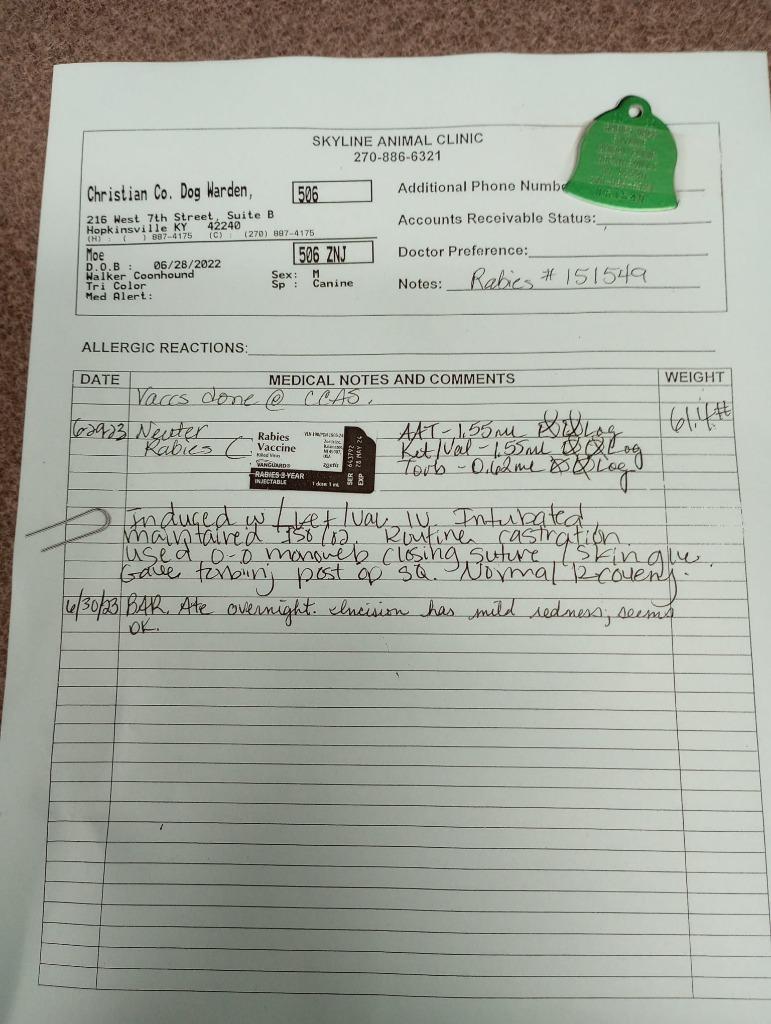 SKYLINE ANIMAL CLINIC
270-886-6321
Christian Co. Dog Warden, 506
216 West 7th Street, Suite B
Hopkinsville KY 42240
(H) : ( ) 887-4175 (C) : (270) 887-4175
Moe 506 ZNJ
D.O.B : 06/28/2022
Walker Coonhound Sex: M
Tri Color Sp : Canine
Med Alert:
Additional Phone Numbe
Accounts Receivable Status:
Doctor Preference:
Notes: Rabies # 151549
ALLERGIC REACTIONS:
DATE MEDICAL NOTES AND COMMENTS WEIGHT
Vaccs done @ CCAS.
6-29-23 Neuter AAT - 1.55 mL Log 61.4#
Rabies C Ket/Val - 1.55 mL Log
Torb - 0.62 mL Log
Rabies
Vaccine
Killed Virus
VANGUARD® zoetis
RABIES 3-YEAR
INJECTABLE 1 dose 1 mL
SER
EXP 28 MAY 24
Induced w/ Ket/Val IV Intubated
maintained Iso/O2. Routine castration.
used 0-0 monoweb closing suture / skin glue.
Gave torb inj post op SQ. Normal Recovery.
6/30/23 BAR. Ate overnight. Incision has mild redness, seems
OK.